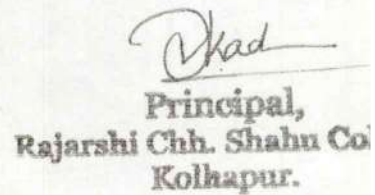 Principal,
Rajarshi Chh. Shahu Col
Kolhapur.